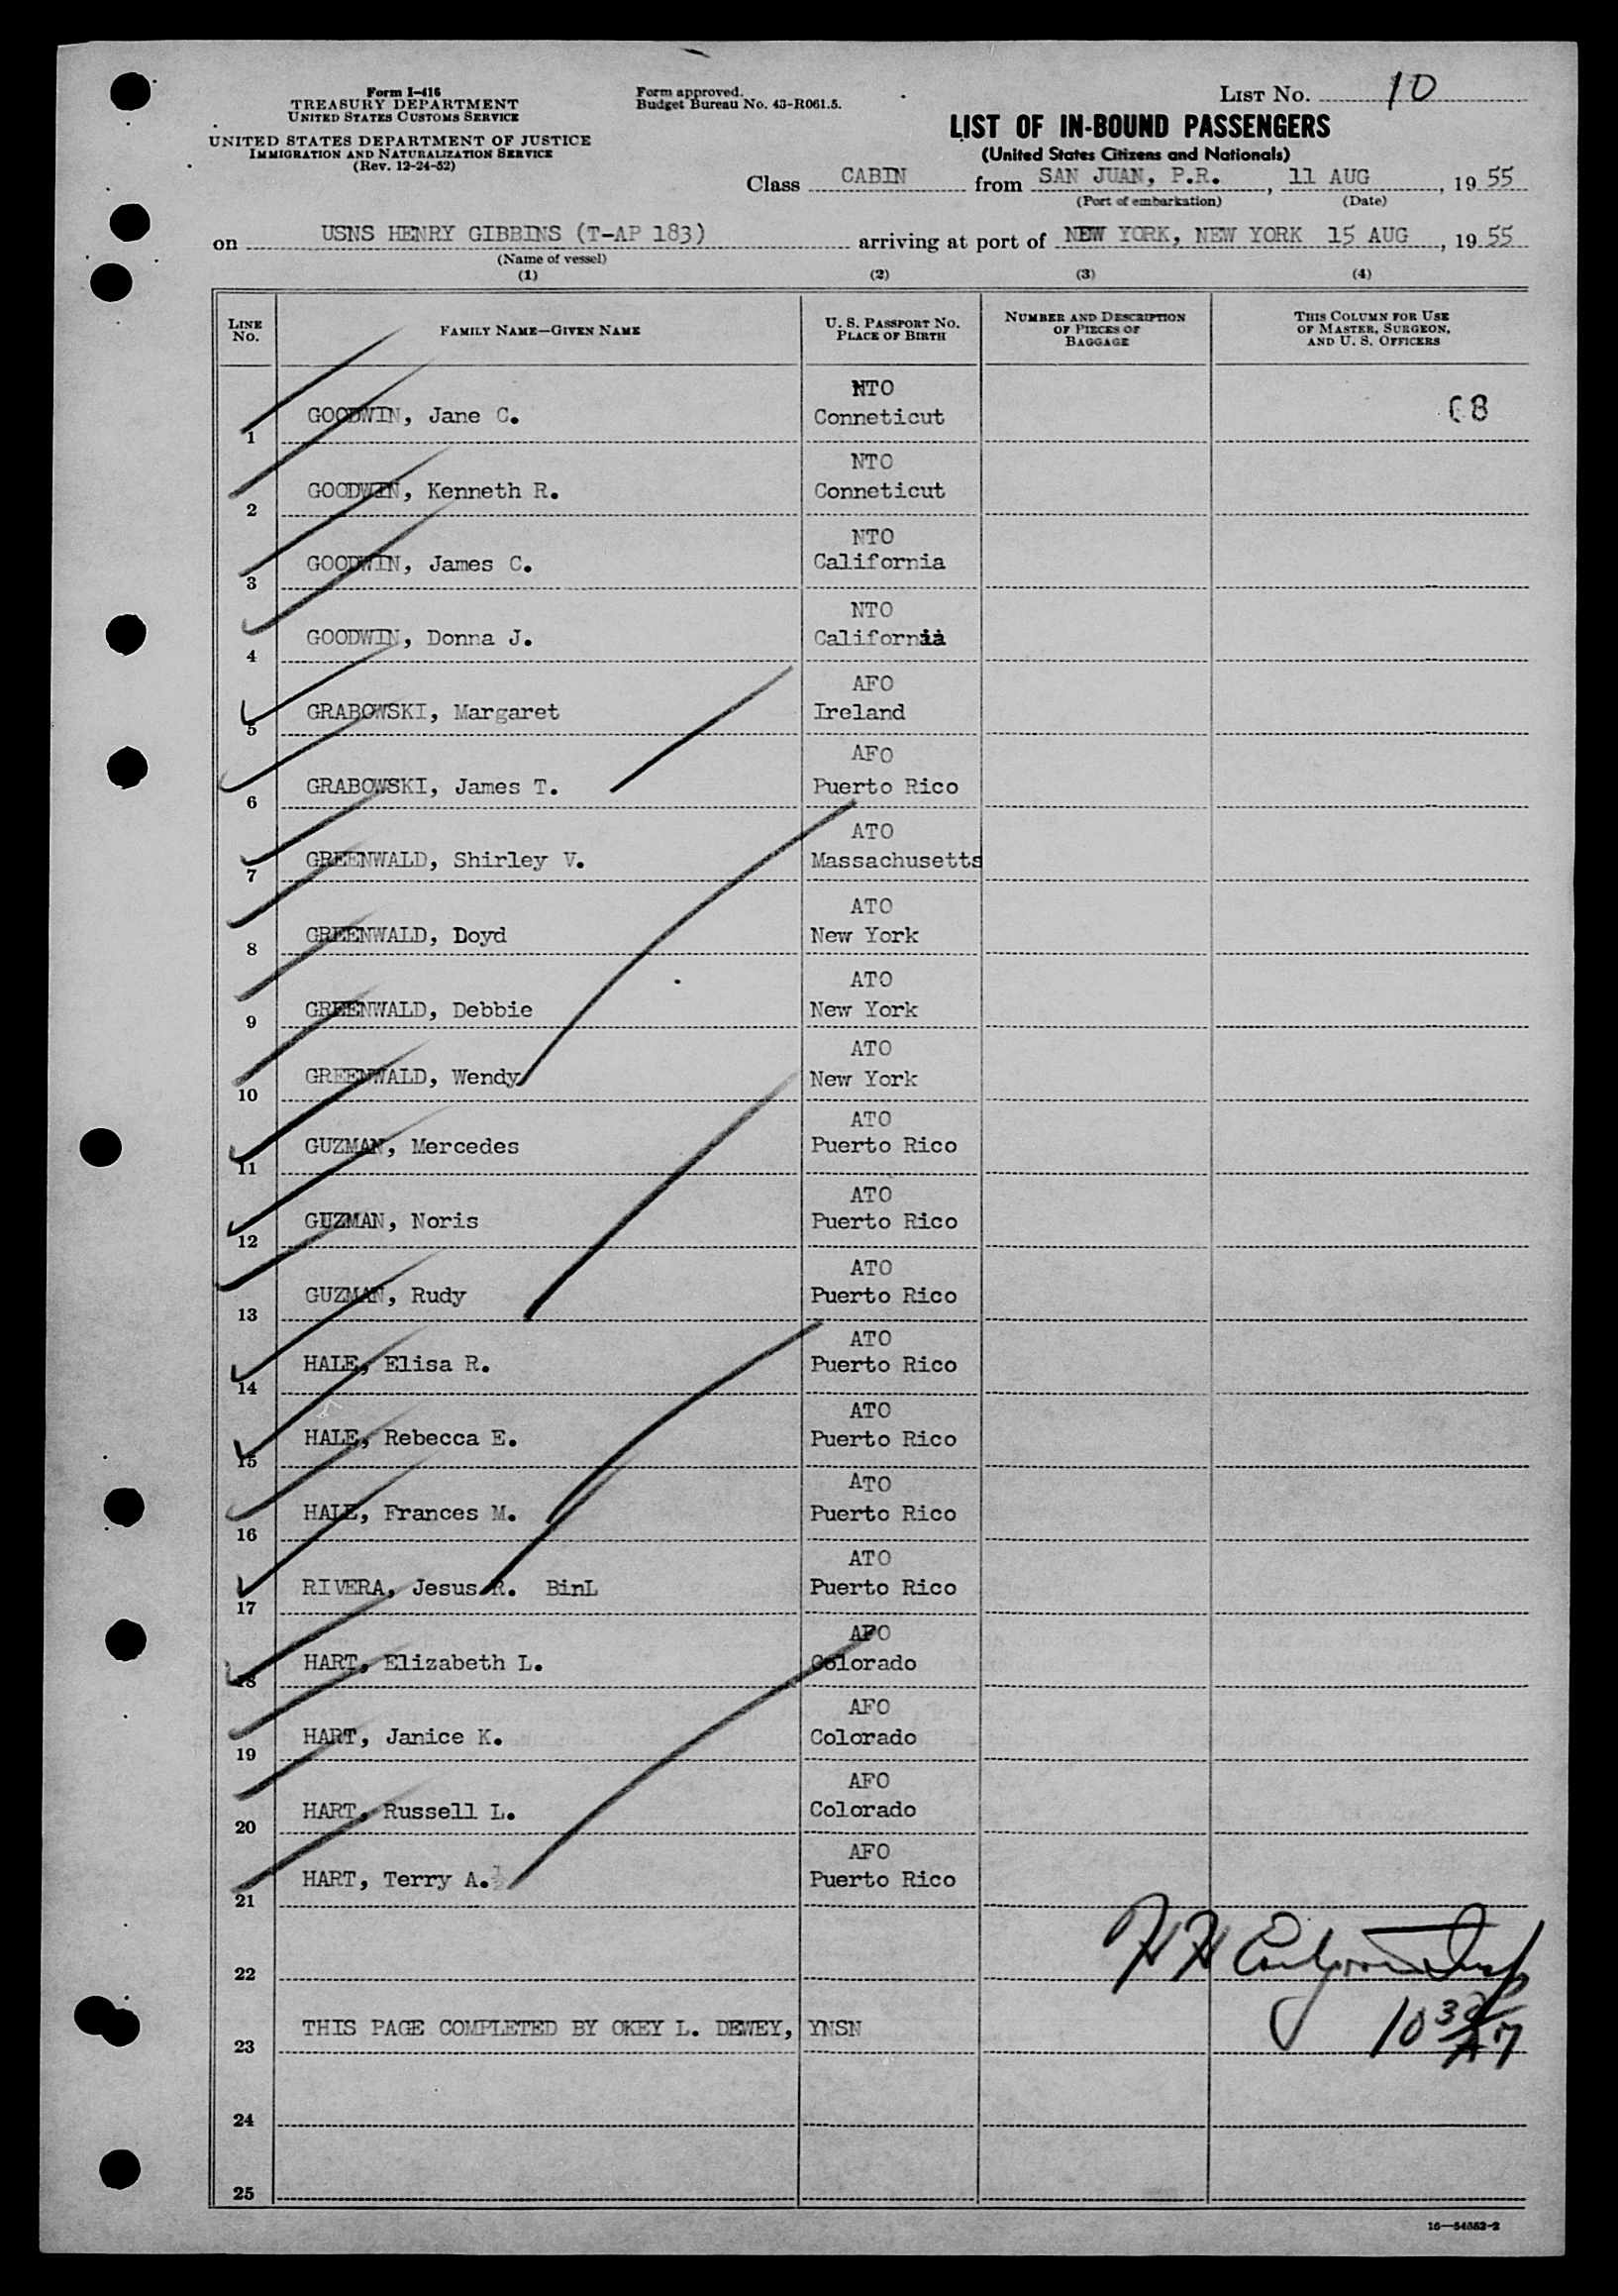 Form I-416
TREASURY DEPARTMENT
UNITED STATES CUSTOMS SERVICE
UNITED STATES DEPARTMENT OF JUSTICE
IMMIGRATION AND NATURALIZATION SERVICE
(Rev. 12-24-52)
Form approved.
Budget Bureau No. 43-R061.5.
LIST No. 10
LIST OF IN-BOUND PASSENGERS
(United States Citizens and Nationals)
Class CABIN from SAN JUAN, P.R., 11 AUG, 19 55
(Port of embarkation) (Date)
on USNS HENRY GIBBINS (T-AP 183) arriving at port of NEW YORK, NEW YORK 15 AUG, 19 55
(Name of vessel)
(1) (2) (3) (4)
LINE No. FAMILY NAME—GIVEN NAME U. S. PASSPORT NO. PLACE OF BIRTH NUMBER AND DESCRIPTION OF PIECES OF BAGGAGE THIS COLUMN FOR USE OF MASTER, SURGEON, AND U. S. OFFICERS
NTO
1 GOODWIN, Jane C. Conneticut 68
NTO
2 GOODWIN, Kenneth R. Conneticut
NTO
3 GOODWIN, James C. California
NTO
4 GOODWIN, Donna J. California
AFO
5 GRABOWSKI, Margaret Ireland
AFO
6 GRABOWSKI, James T. Puerto Rico
ATO
7 GREENWALD, Shirley V. Massachusetts
ATO
8 GREENWALD, Doyd New York
ATO
9 GREENWALD, Debbie New York
ATO
10 GREENWALD, Wendy New York
ATO
11 GUZMAN, Mercedes Puerto Rico
ATO
12 GUZMAN, Noris Puerto Rico
ATO
13 GUZMAN, Rudy Puerto Rico
ATO
14 HALE, Elisa R. Puerto Rico
ATO
15 HALE, Rebecca E. Puerto Rico
ATO
16 HALE, Frances M. Puerto Rico
ATO
17 RIVERA, Jesus R. BinL Puerto Rico
AFO
18 HART, Elizabeth L. Colorado
AFO
19 HART, Janice K. Colorado
AFO
20 HART, Russell L. Colorado
AFO
21 HART, Terry A. Puerto Rico
22 H H Insp
23 THIS PAGE COMPLETED BY OKEY L. DEWEY, YNSN 10 30 AM
24
25
16—54552-2